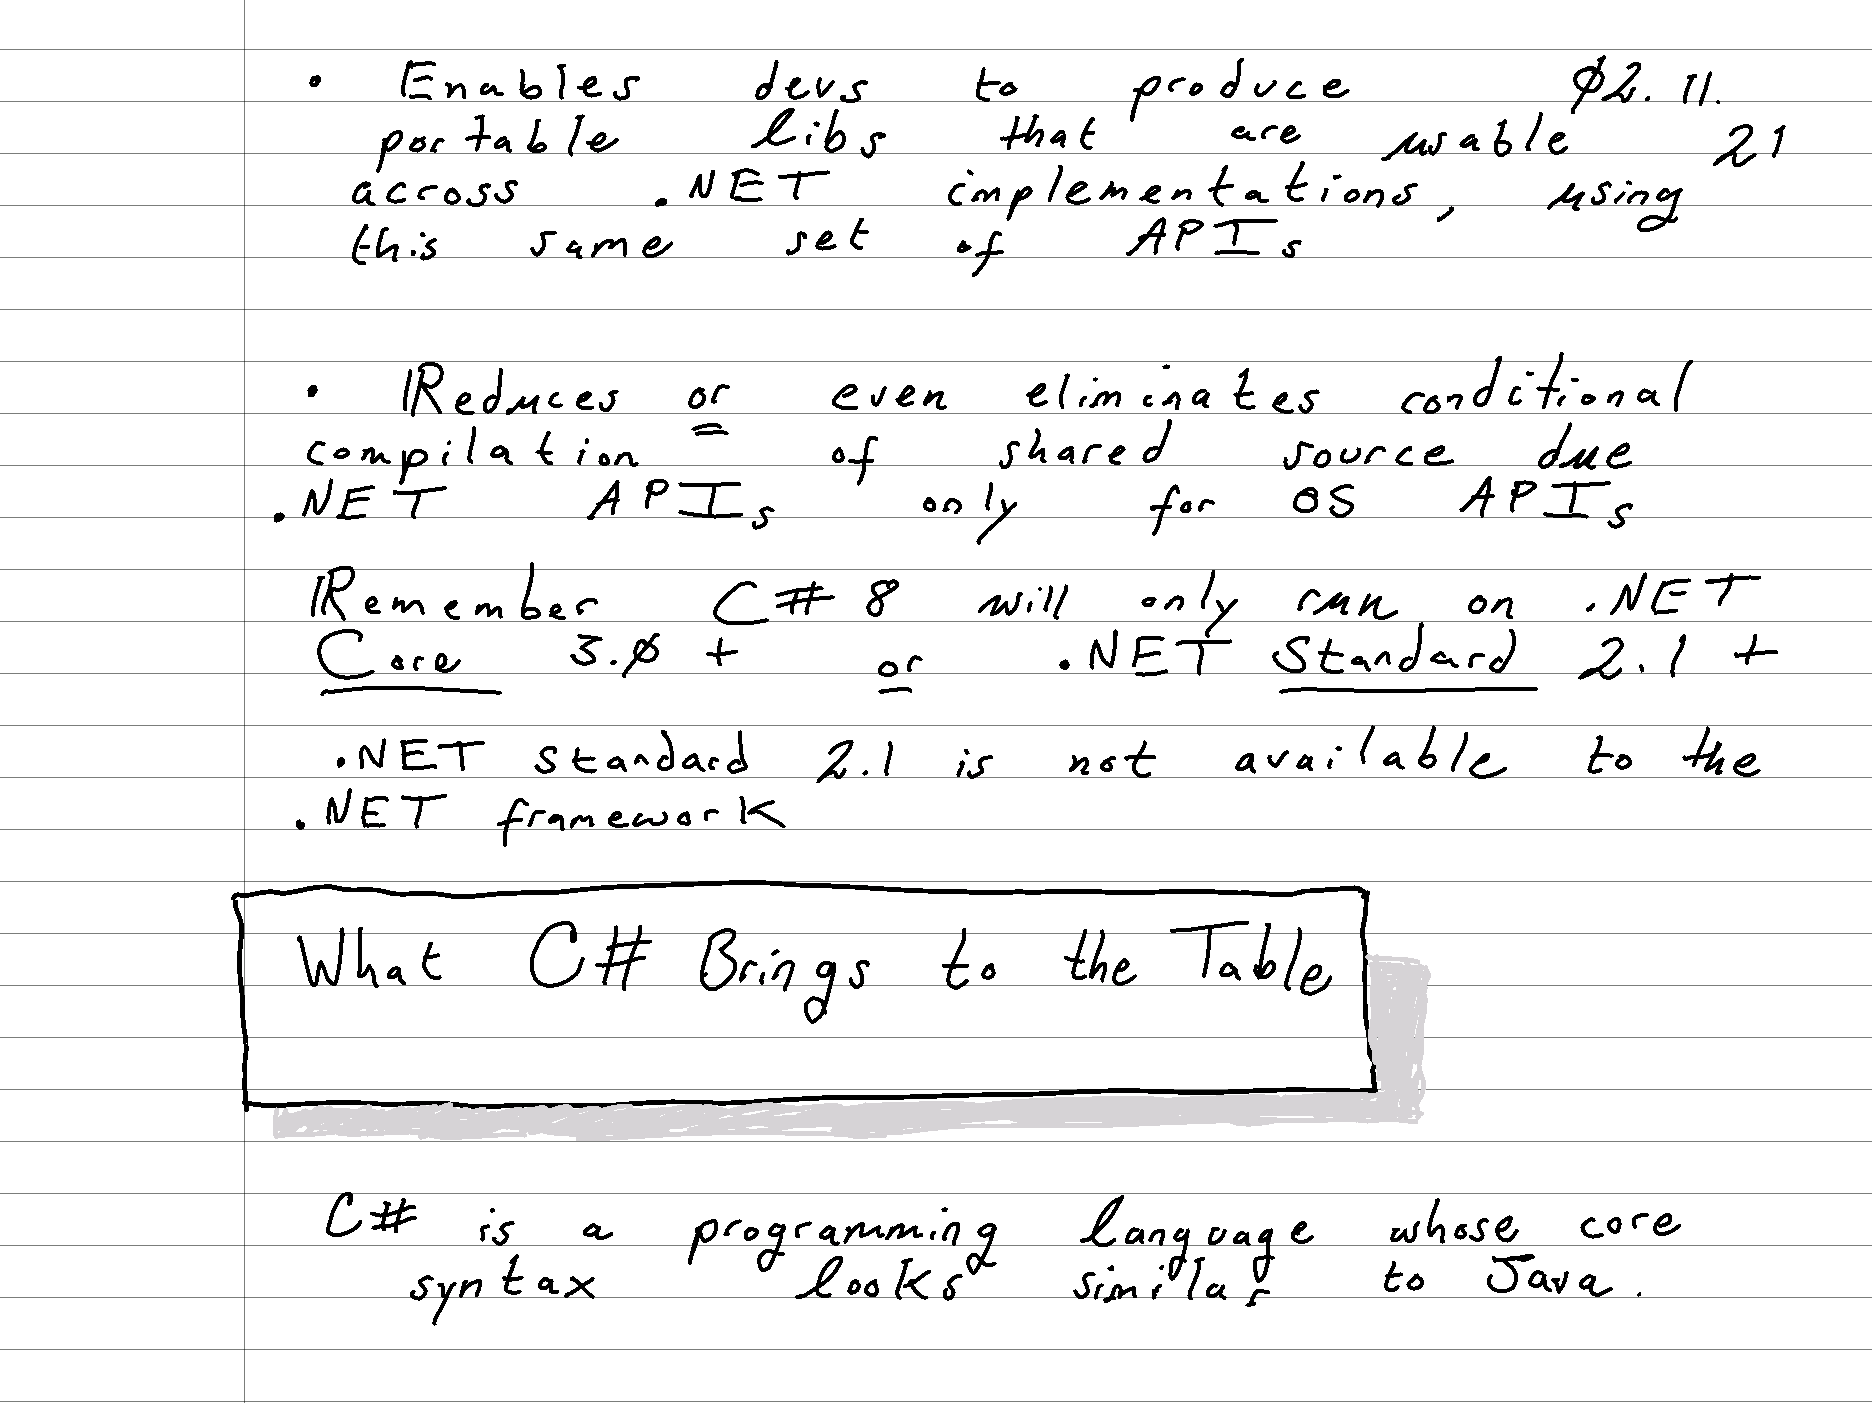 • Enables devs to produce 02.11.
portable libs that are usable 21
across .NET implementations, using
this same set of APIs
• Reduces or even eliminates conditional
compilation of shared source due
.NET APIs only for OS APIs
Remember C# 8 will only run on .NET
Core 3.0 + or .NET Standard 2.1 +
.NET standard 2.1 is not available to the
.NET framework
What C# Brings to the Table
C# is a programming language whose core
syntax looks similar to Java.